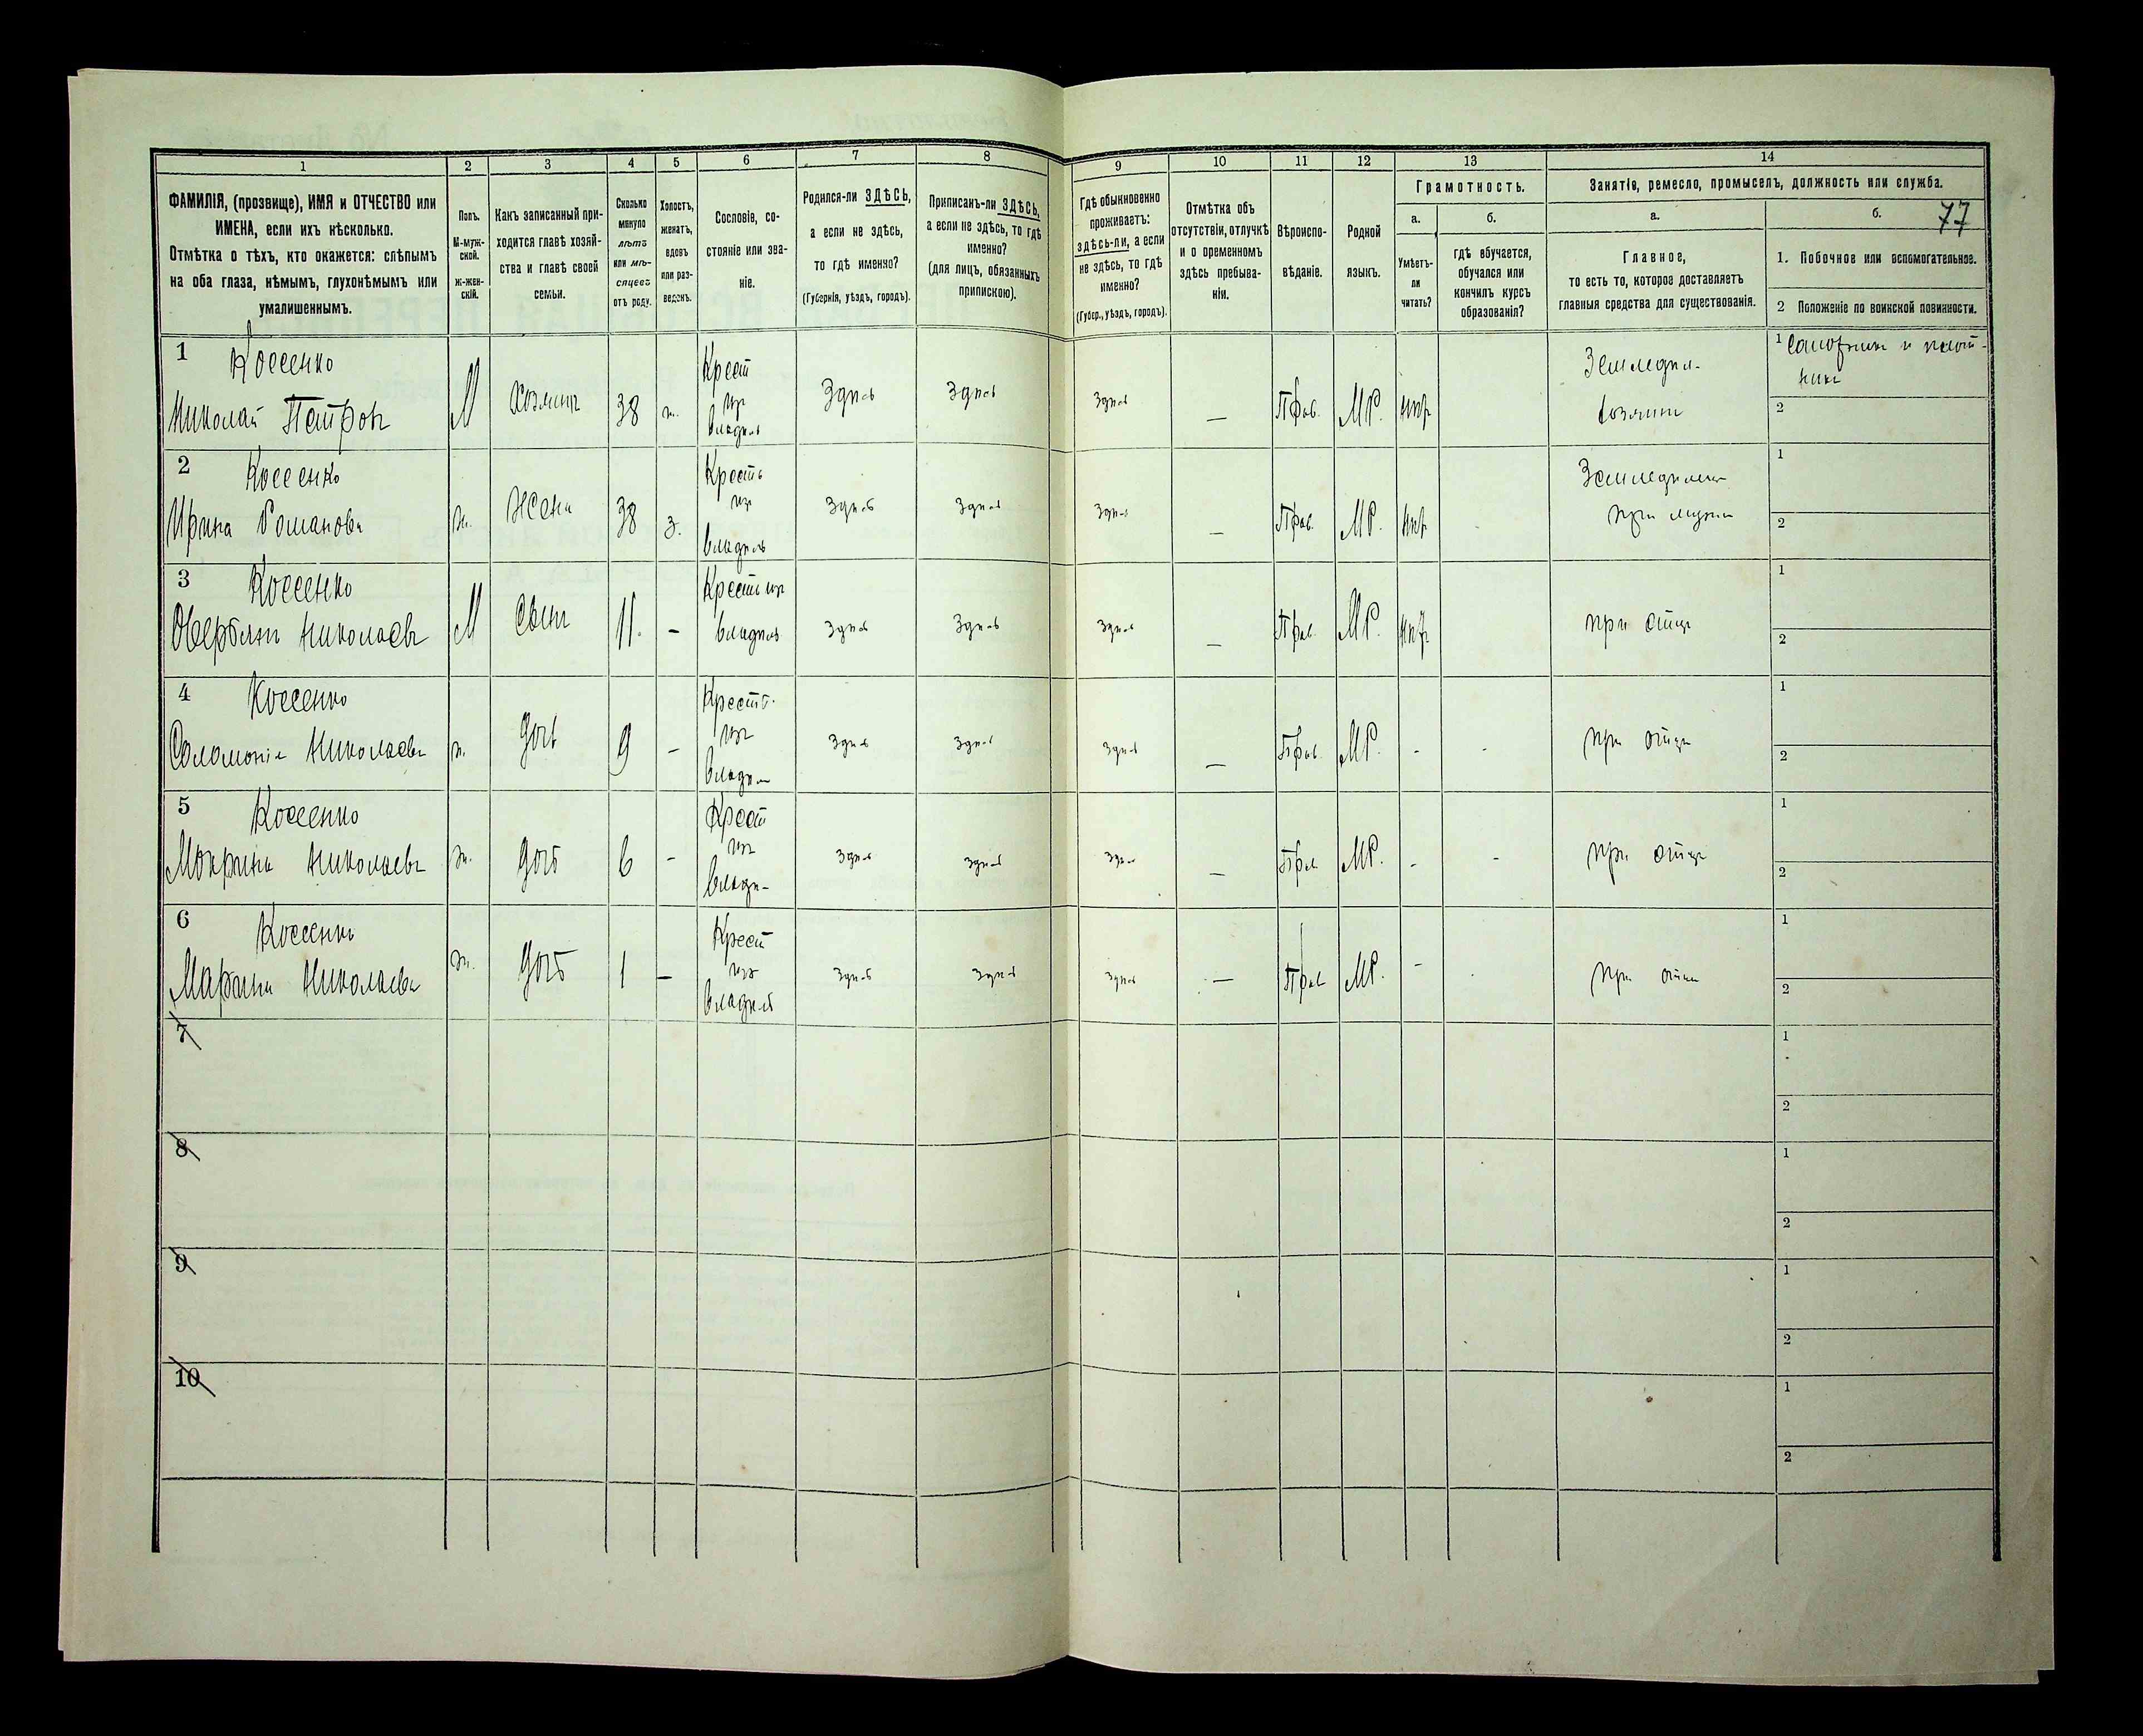 1 2 3 4 5 6 7 8 9 10 11 12 13 14
ФАМИЛІЯ, (прозвище), ИМЯ и ОТЧЕСТВО или
ИМЕНА, если ихъ нѣсколько.
Отмѣтка о тѣхъ, кто окажется: слѣпымъ
на оба глаза, нѣмымъ, глухонѣмымъ или
умалишеннымъ.
Полъ.
М-муж-
ской.
ж-жен-
скій.
Какъ записанный при-
ходится главѣ хозяй-
ства и главѣ своей
семьи.
Сколько
минуло
лѣтъ
или мѣ-
сяцевъ
отъ роду.
Холостъ,
женатъ,
вдовъ
или раз-
веденъ.
Сословіе, со-
стояніе или зва-
ніе.
Родился-ли ЗДѢСЬ,
а если не здѣсь,
то гдѣ именно?
(Губернія, уѣздъ, городъ).
Приписанъ-ли ЗДѢСЬ,
а если не здѣсь, то гдѣ
именно?
(для лицъ, обязанныхъ
припискою).
Гдѣ обыкновенно
проживаетъ:
здѣсь-ли, а если
не здѣсь, то гдѣ
именно?
(Губер., уѣздъ, городъ).
Отмѣтка объ
отсутствіи, отлучкѣ
и о временномъ
здѣсь пребыва-
ніи.
Вѣроиспо-
вѣданіе.
Родной
языкъ.
Грамотность.
а.
Умѣетъ-
ли
читать?
б.
гдѣ обучается,
обучался или
кончилъ курсъ
образованія?
Занятіе, ремесло, промыселъ, должность или служба.
а.
Главное,
то есть то, которое доставляетъ
главныя средства для существованія.
б.
77
1. Побочное или вспомогательное.
2 Положеніе по воинской повинности.
1 Косенко
Николай Петровъ
М Хозяинъ 38 ж.
Крест
изъ
владѣль
Здѣсь Здѣсь Здѣсь — Прав. МР. нѣтъ
Земледѣл.
хозяинъ
1
2
2 Косенко
Ирина Романова
ж. Жена 38 з.
Кресть
изъ
владѣль
Здѣсь Здѣсь Здѣсь — Прав. МР. нѣтъ
при мужѣ
1
2
3 Косенко
Николаевъ
М Сынъ 11. -
Кресть изъ
владѣль
Здѣсь Здѣсь Здѣсь — Прав. МР. нѣтъ
при отцѣ
1
2
4 Косенко
Соломонія Николаева
ж. дочь 9 -
Кресть.
изъ
владѣл
Здѣсь Здѣсь Здѣсь — Прав. МР. - -
при отцѣ
1
2
5 Косенко
Мокрина Николаева
ж. дочь 6 -
Крест
изъ
Владѣ-
Здѣсь Здѣсь Здѣсь — Прав МР. - -
при отцѣ
1
2
6 Косенко
Марина Николаева
ж. дочь 1 —
Крест
изъ
владѣл
Здѣсь Здѣсь Здѣсь — Прав МР. -
при отцѣ
1
2
7
1
2
8
1
2
9
1
2
10
1
2